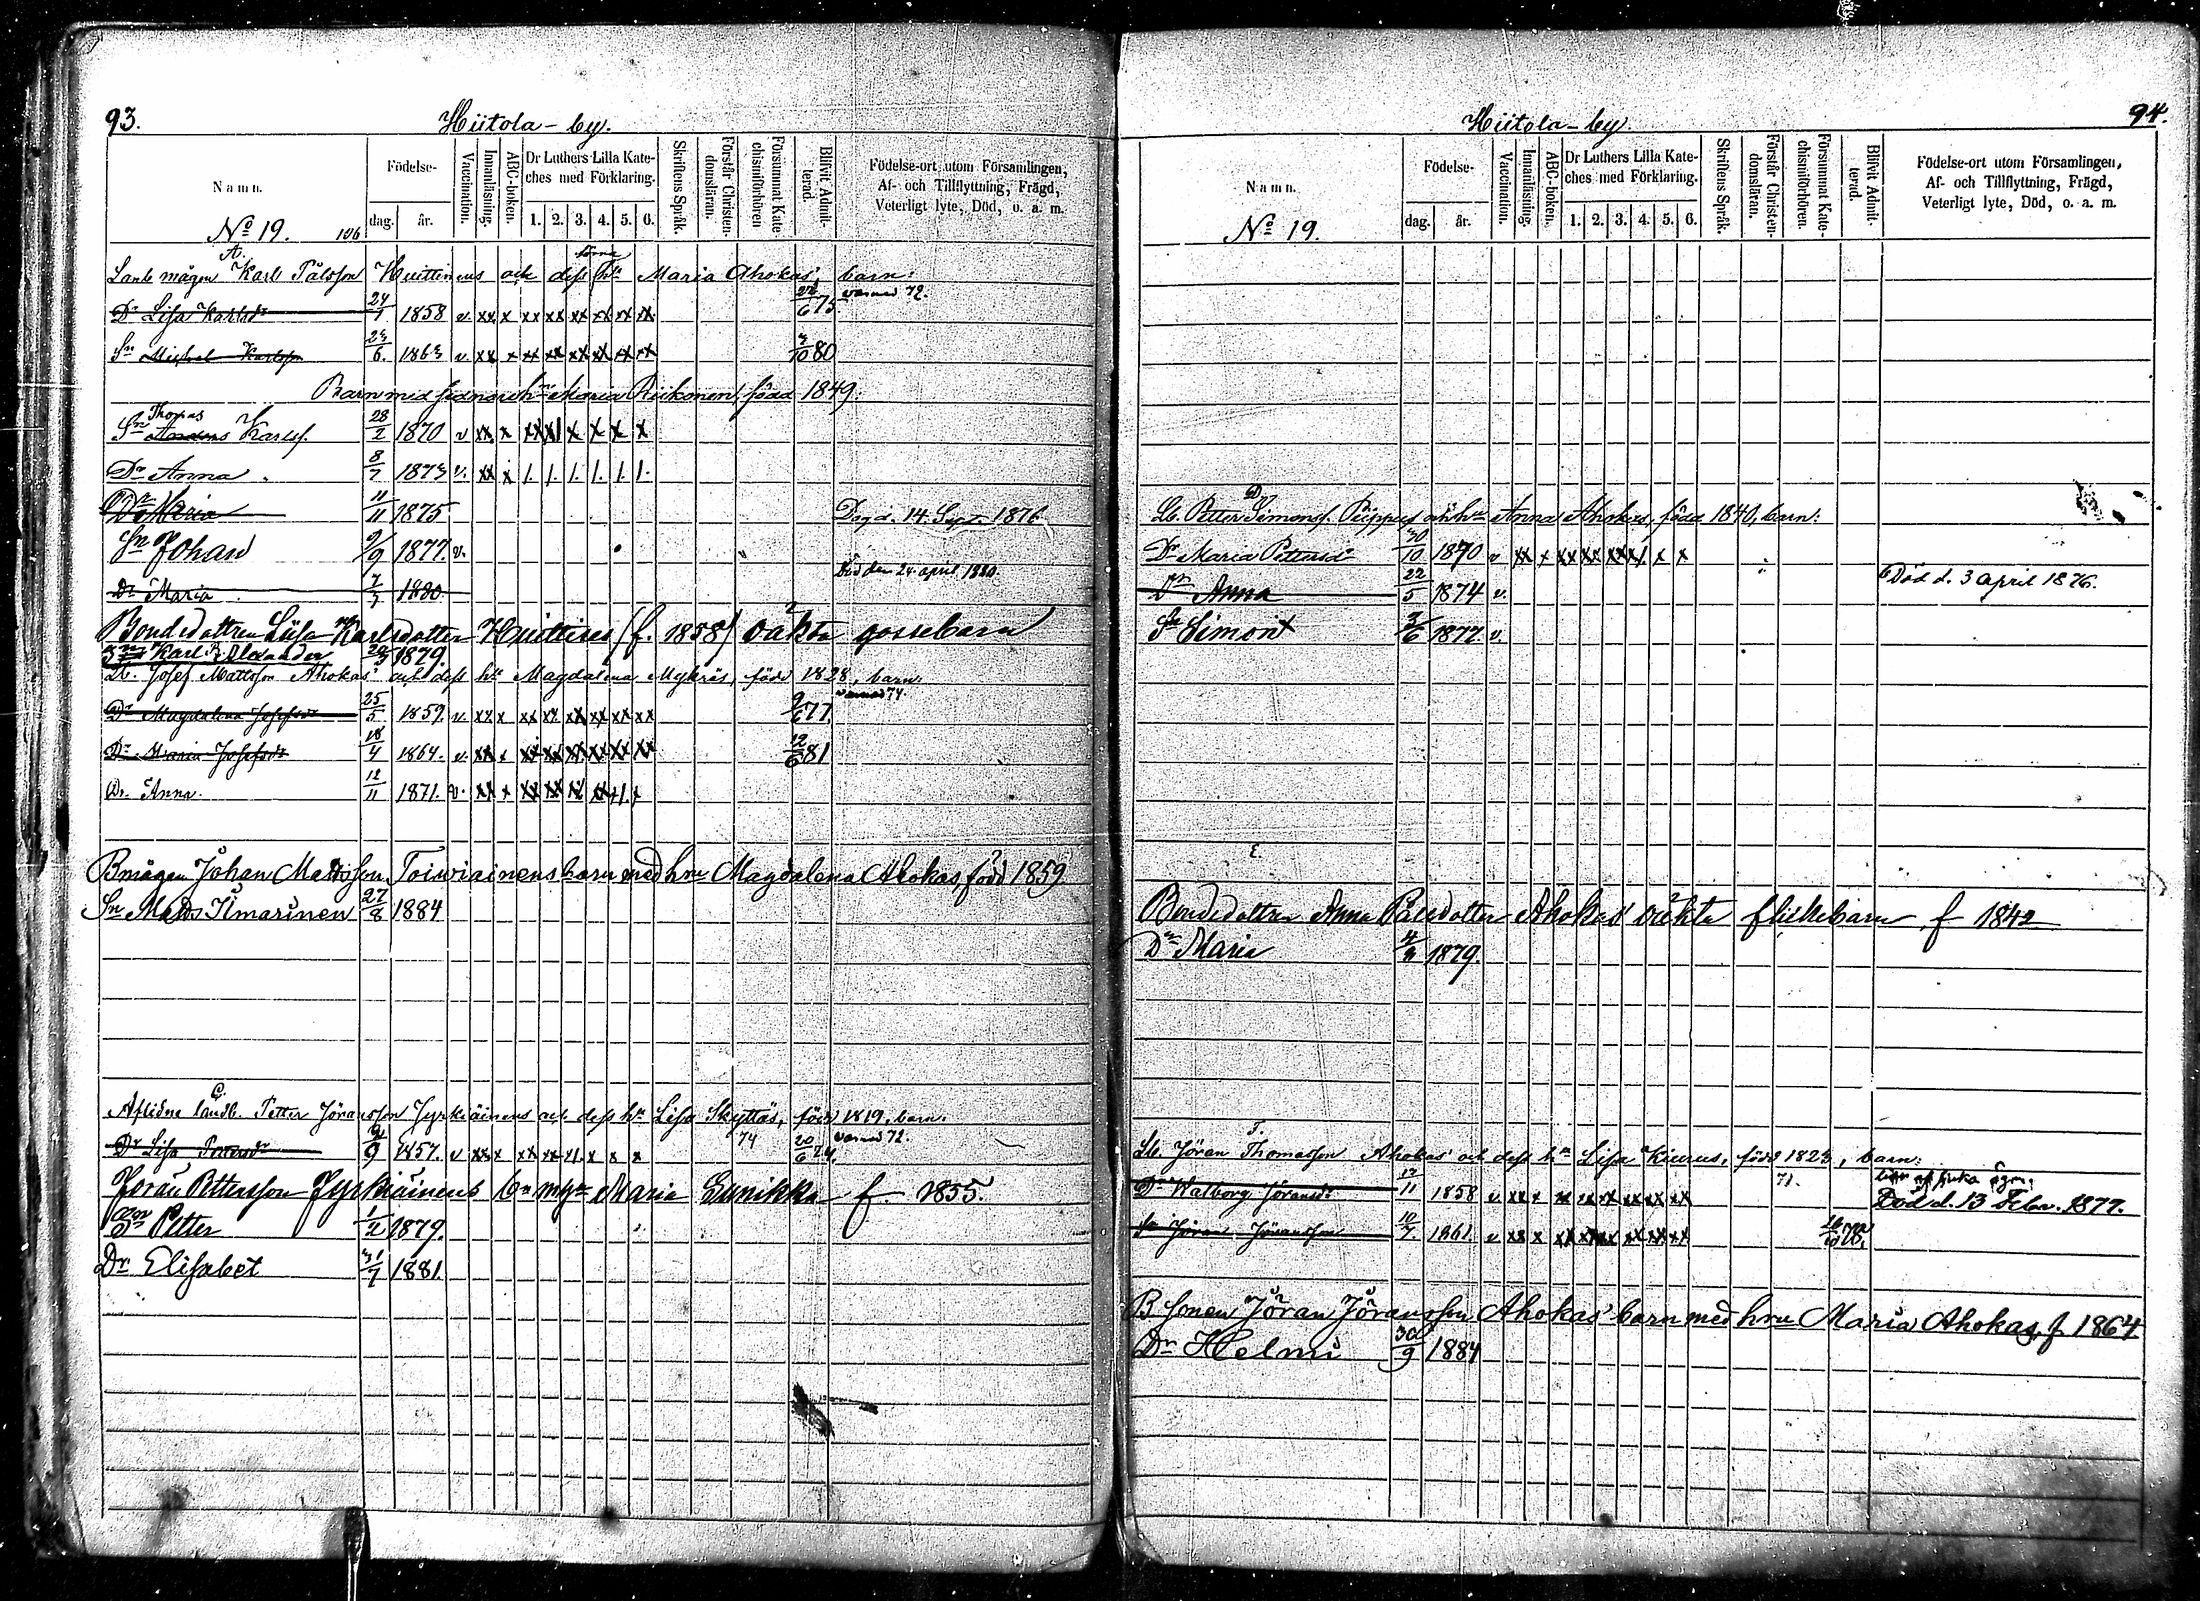 93.
Hiitola-by.
Namn.
Födelse-
dag.
år.
Vaccination.
Innanläsning.
ABC-boken.
Dr Luthers Lilla Kate-
ches med Förklaring.
1. 2. 3. 4. 5. 6.
Skriftens Språk.
Förstår Christen-
domsläran.
Försummat Kate
chismiförhören
Blifvit Admit-
terad.
Födelse-ort utom Församlingen,
Af- och Tillflyttning, Frägd,
Veterligt lyte, Död, o. a. m.
No 19. 106
A.
Lanb mågen Karl Pålsson Huittinens och dess förra hu Maria Ahokas' barn:
Dr Lisa Karlsdr 24/1 1858 v. xx x xx xx xx xx xx xx 6 75
Sn Michel Karlsson 23/6. 1863 v. xx x xx xx xx xx xx xx 3/10 80
Barn med sednare hn Maria Riikonen, född 1849:
Thomas
Sn Anders Karlss. 28/2 1870 v xx x
Dr Anna 8/7 1873 v. xx x 1. 1. 1. 1. 1. 1.
Dr Maria 11/11 1875 Dog d. 14 Sept. 1876
Sn Johan 9/9 1877 v.
Död den 24 april 1880.
Dr Maria 7/7 1880
Bondedottren Liisa Karlsdotter Huittises (f. 1858) oäkta gossebarn
Sn Karl Alexander 1879.
Lb. Josef Mattsson Ahokas' och dess hu Magdalena Mykräs, född 1828, barn:
Dr Magdalena Josefsdr 25/5 1859. v. xx x xx xx xx xx xx xx 9/6 77
Dr Maria Josefsdr 18/4 1864. v. xx x xx xx xx xx xx xx 12/6 81
Dr. Anna. 12/11 1871. v. xx x
Bmågen Johan Mattsson Toiwiainens barn med hru Magdalena Ahokas, född 1859
Sn Matts Ilmarinen 27/8 1884
C.
Aflidne landb. Petter Jöransson Jyrkiäinens och dess hu Lisa Skyttäs, född 1819, barn:
Dr Lisa Pettersdr 1857. v xx x xx xx x1. x x x 74
Jöran Pettersson Jyrkiäinens bn m hn Maria Eunikka f. 1855.
Sn Petter 1/2 1879.
Dr Elisabet 31/7 1881.
94.
Hiitola-by.
Namn.
Födelse-
dag.
år.
Vaccination.
Innanläsning.
ABC-boken.
Dr Luthers Lilla Kate-
ches med Förklaring.
1. 2. 3. 4. 5. 6.
Skriftens Språk.
Förstår Christen-
domsläran.
Försummat Kate-
chismiförhören.
Blifvit Admit-
terad.
Födelse-ort utom Församlingen,
Af- och Tillflyttning, Frägd,
Veterligt lyte, Död, o. a. m.
No 19.
D.
Lb. Petter Simonss. Piippus och hu Anna Ahokas, född 1840, barn:
Dr Maria Pettersdr 30/10 1870 v xx x xx xx xx x1. x x
Dr Anna 22/5 1874 v. Död d. 3 april 1876.
Sn Simon 3/6 1877. v.
E.
Bondedottren Anna Pålsdotter Ahokas' oäkta flickebarn, f 1842
Dr Maria 1879.
F.
Lb. Jöran Thomasson Ahokas' och dess hu Lisa Kiurus, född 1823, barn:
Dr Walborg Jöransdr 13/11 1858 v xx x xx xx xx xx xx xx 71. Död d. 13 Febr. 1877.
Sn Jöran Jöransson 10/7 1861. v xx x xx xx xx xx xx xx
B sonen Jöran Jöransson Ahokas' barn med hru Maria Ahokas, f 1864
Dr Helmi 30/9 1884